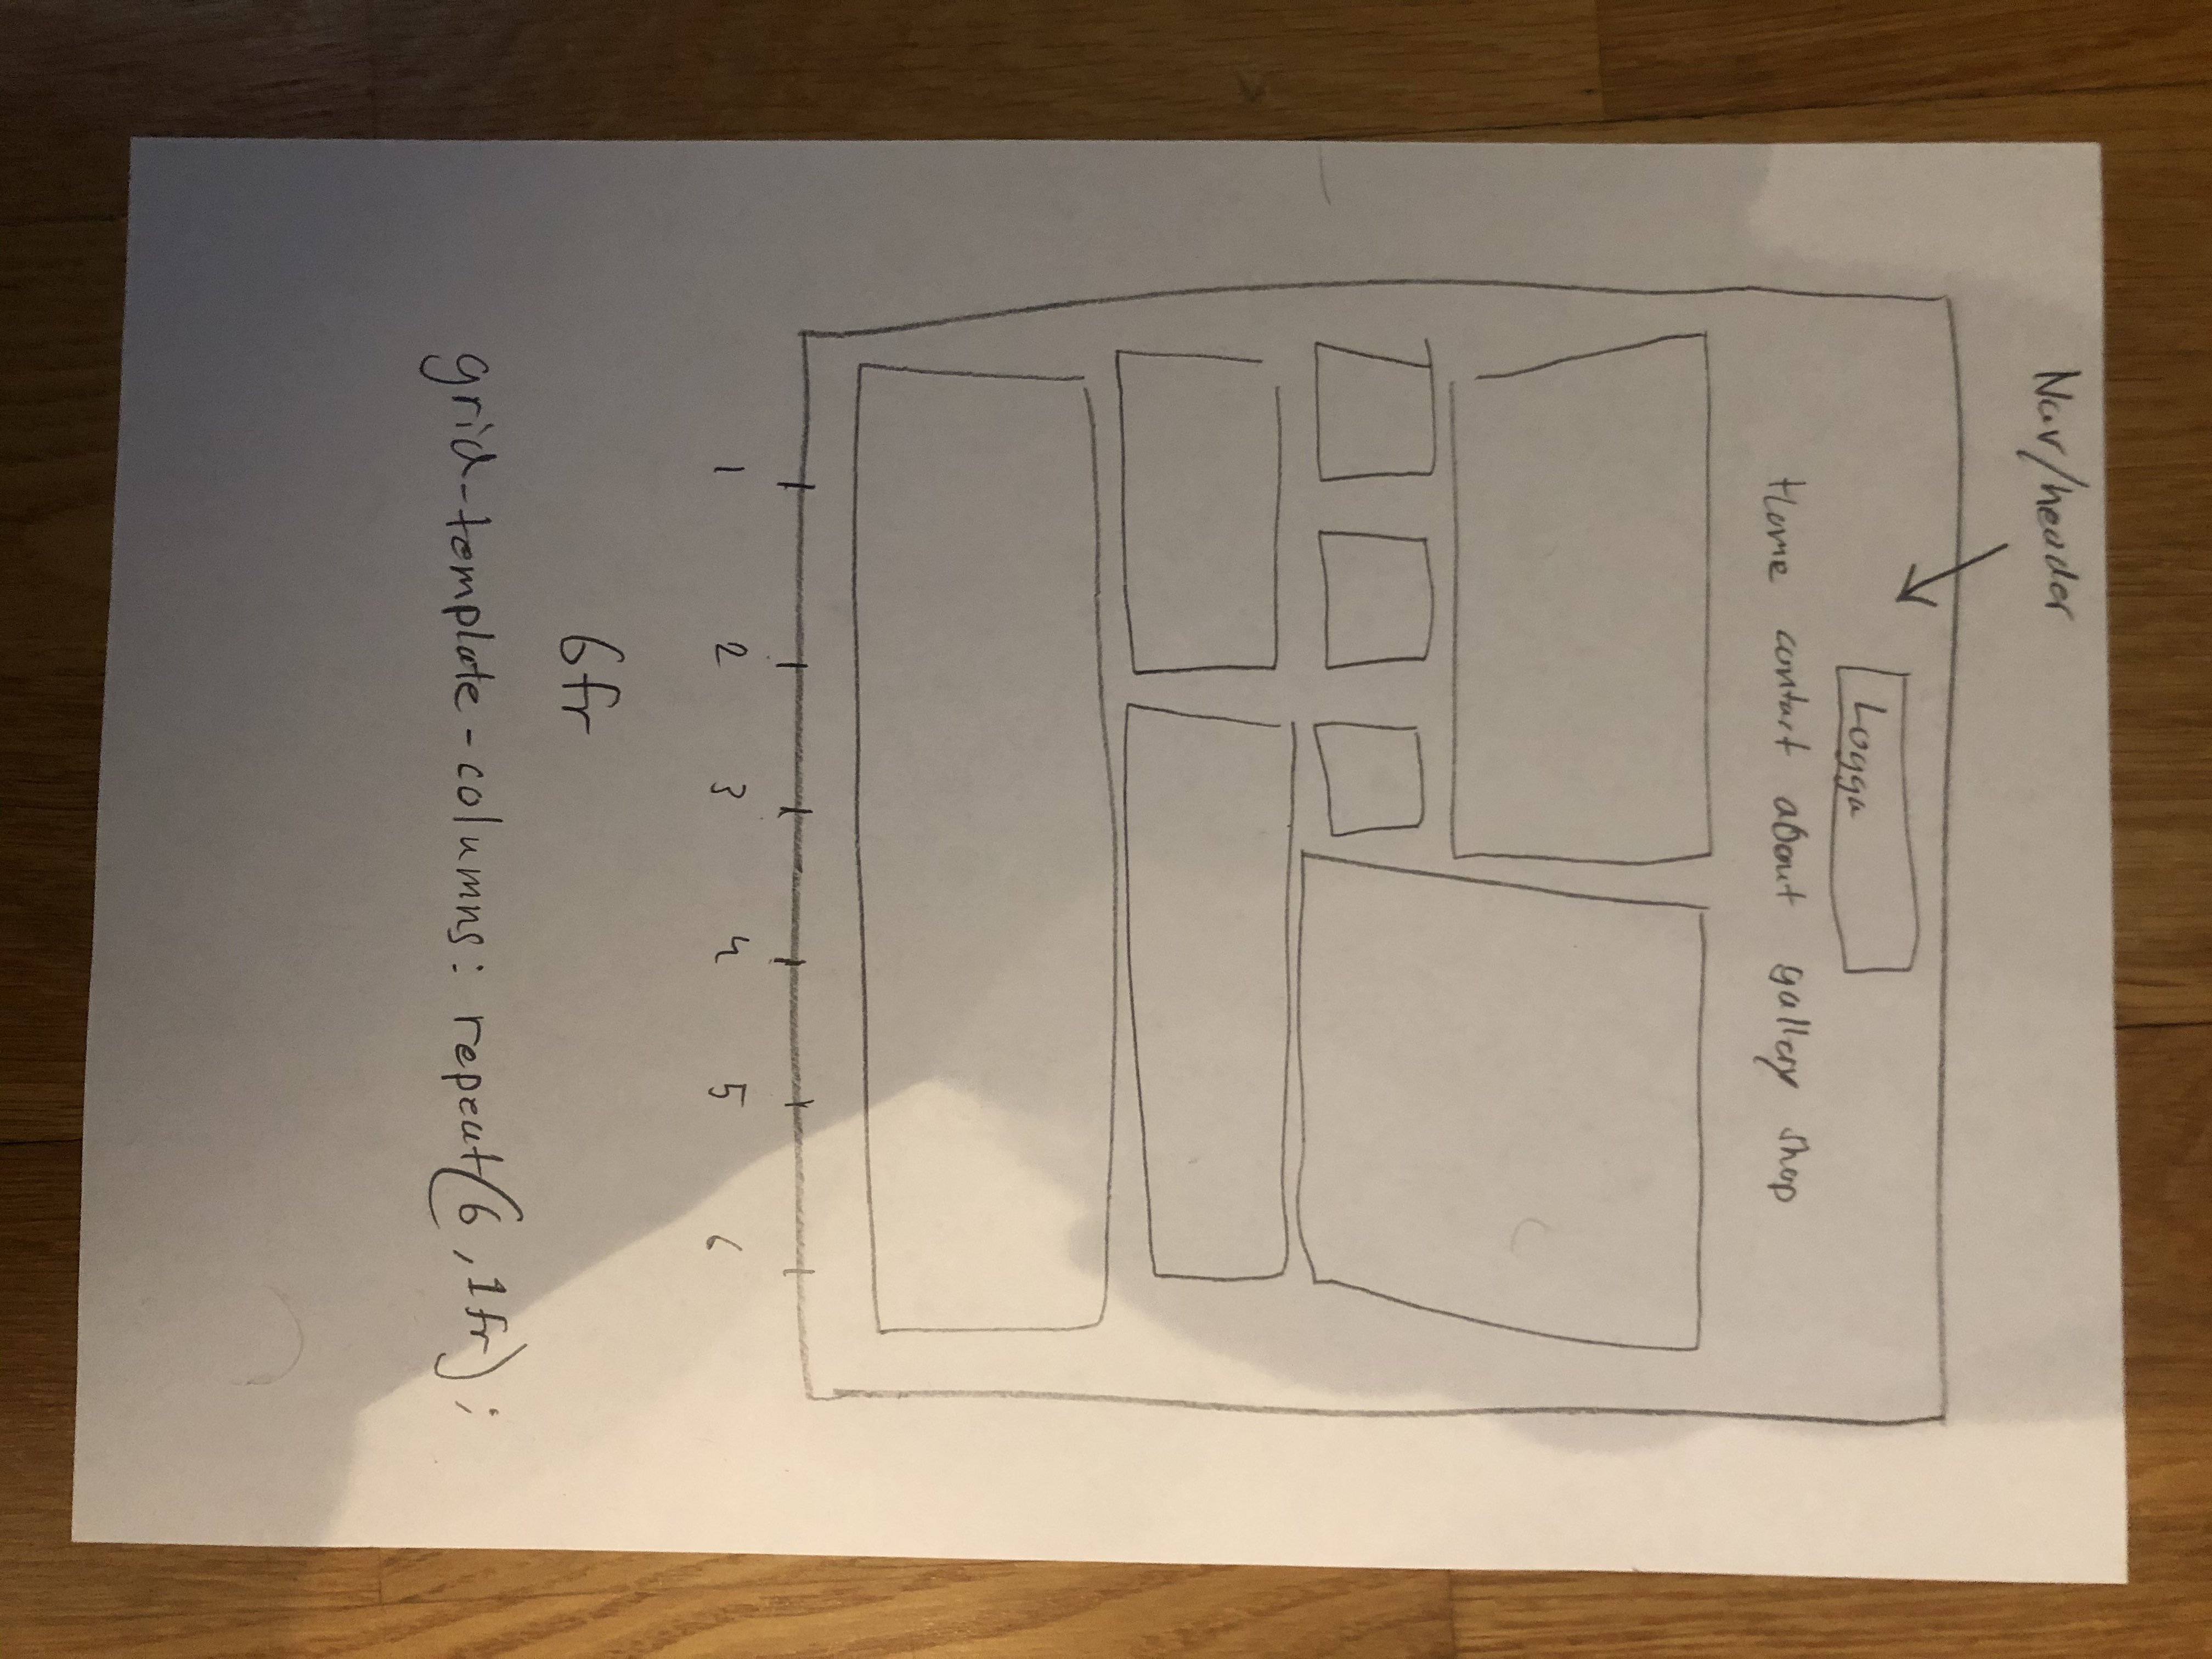 Nav/header
Logga
Home contact about gallery shop
1 2 3 4 5 6
6fr
grid-template-columns: repeat(6, 1fr);